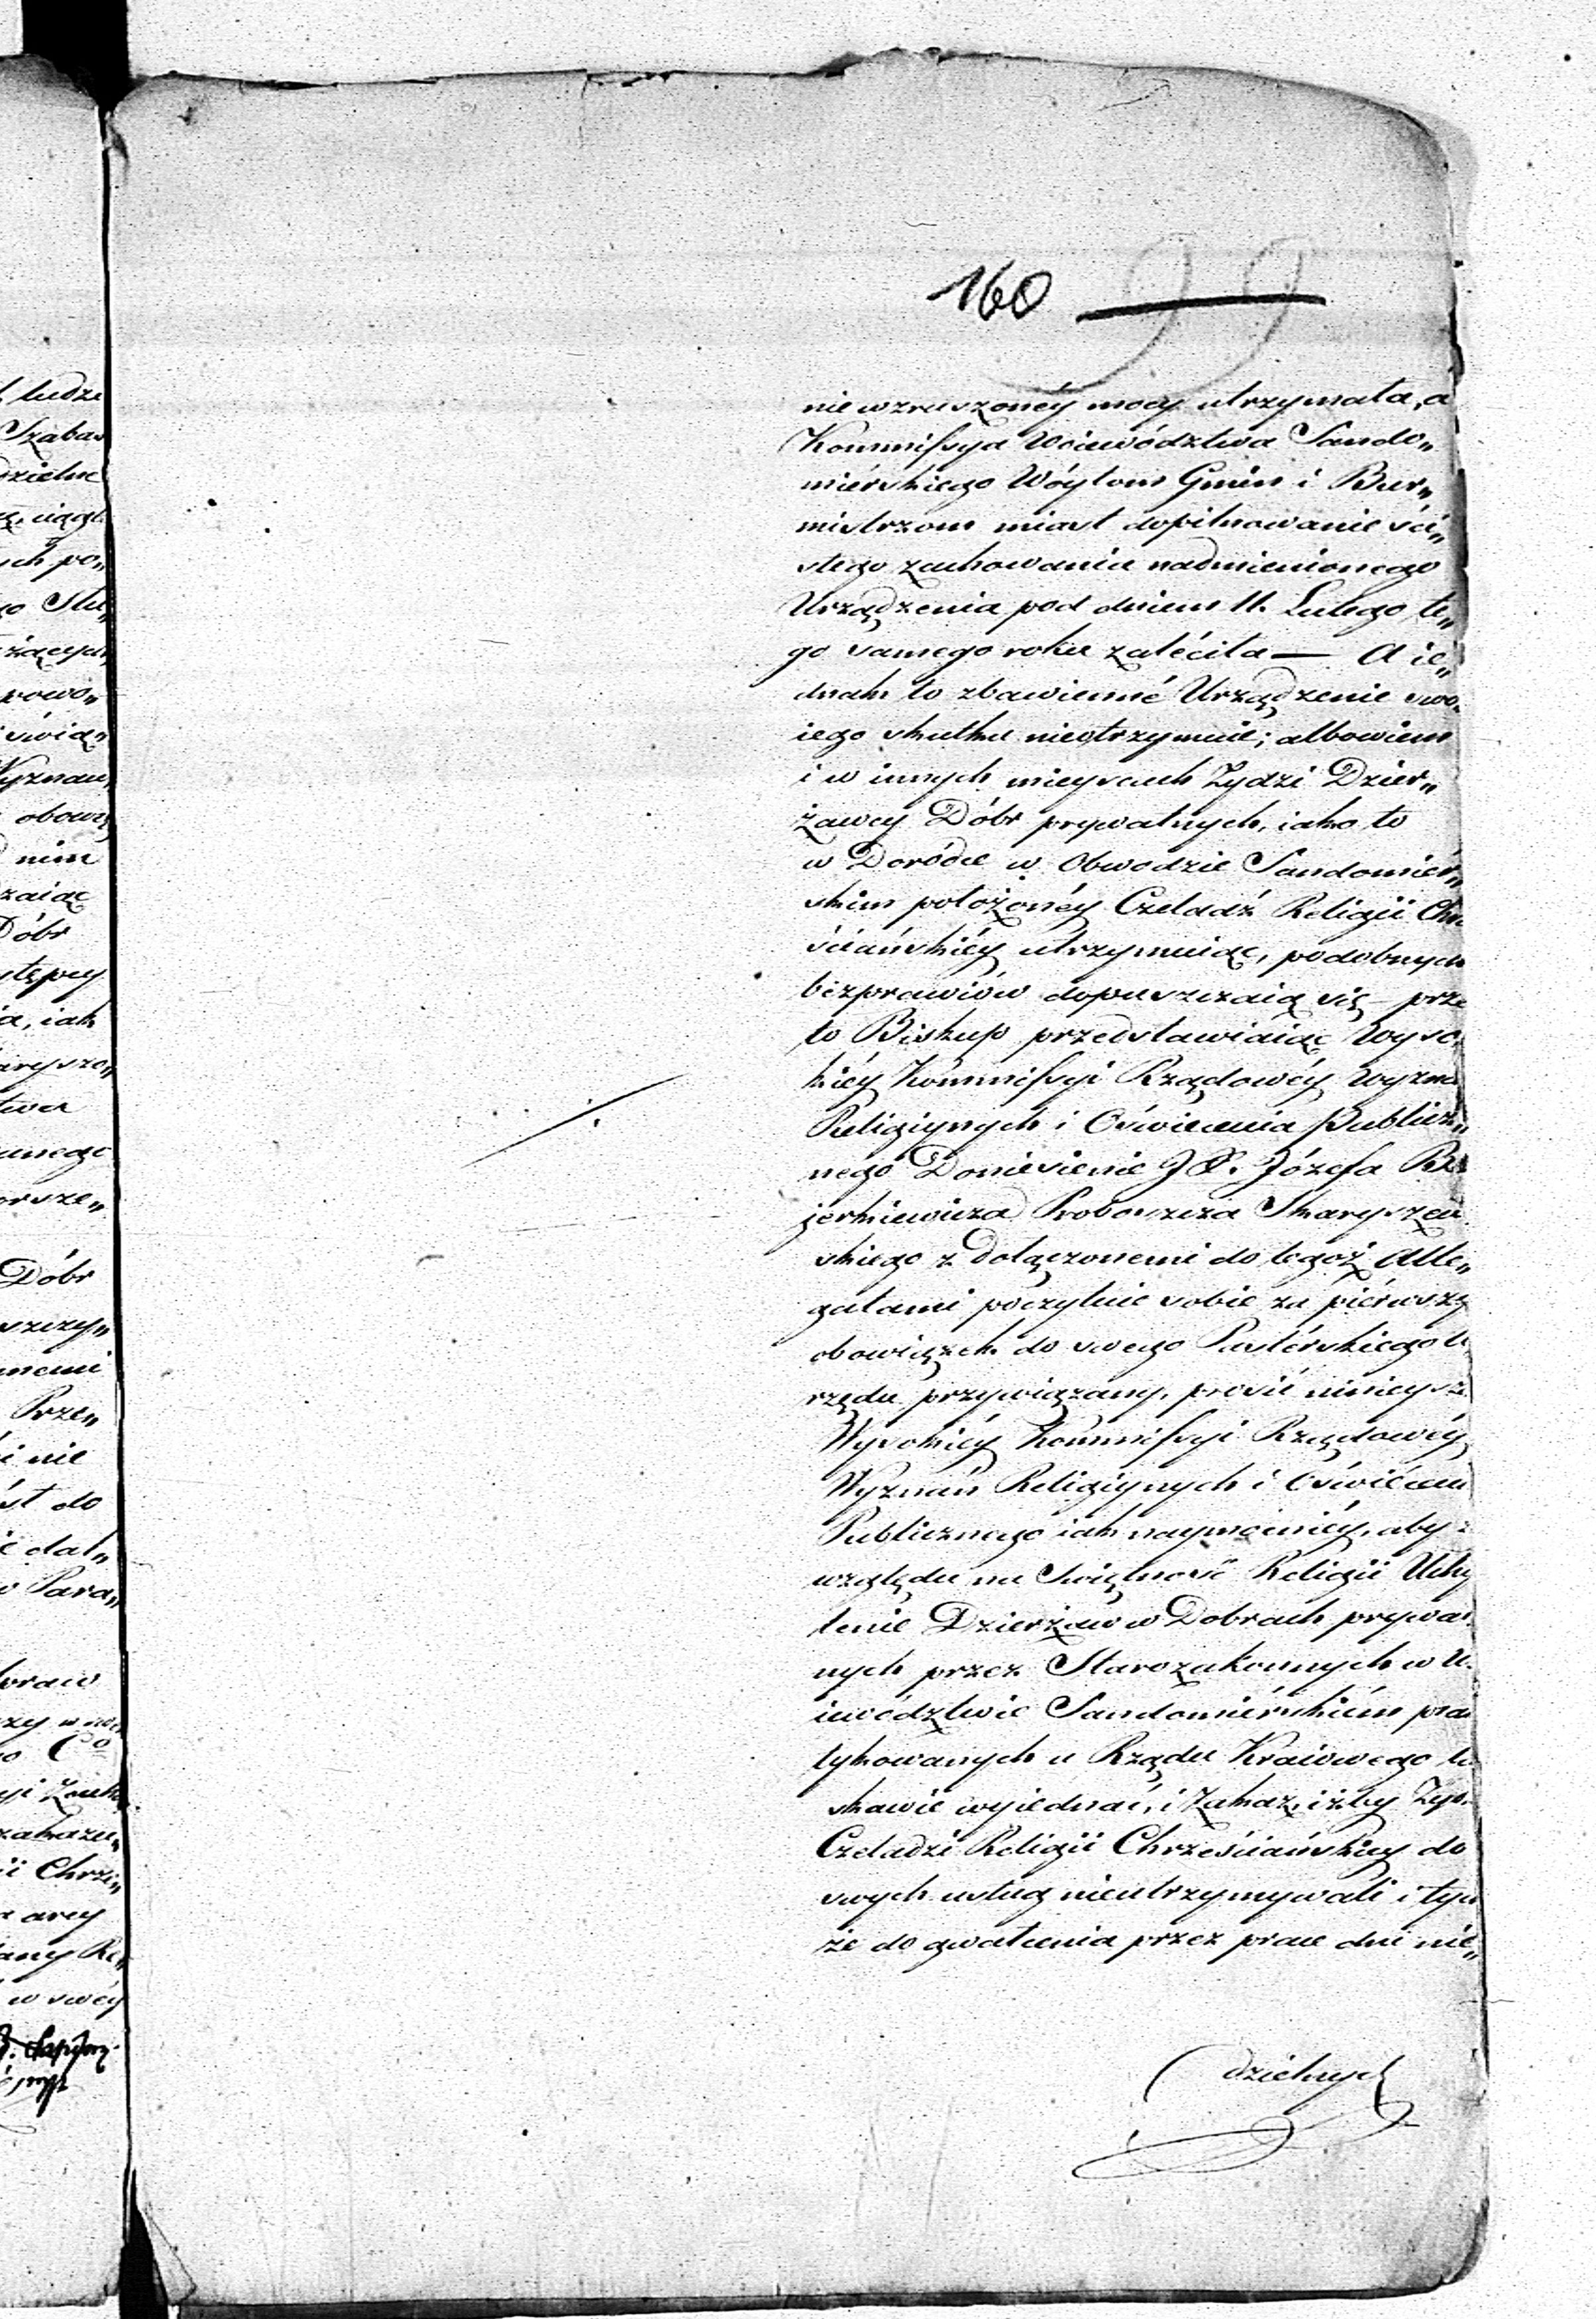 160 99
niewzruszonéy mocy utrzymała, a
Kommissya Woiewództwa Sando„
miérskiego Wóytom Gmin i Bur„
mistrzom miast dopilnowanie ści„
słego zachowania nadmienionego
Urządzenia pod dniem 11. Lutego te„
go samego roku zaléciła — A ie„
dnak to zbawienné Urządzenie swo„
iego skutku nieotrzymuie; albowiem
i w innych mieyscach Żydzi Dzier„
żawcy Dóbr prywatnych, iako to
w Doródce w Obwodzie Sandomiér„
skim położonéy Czeladź Religii Chrze
ściańskiéy utrzymuiąc, podobnych
bezprawiów dopuszczaią się — prze
to Biskup przedstawiaiąc Wyso„
kiéy Kommissyi Rządowéy Wyzna
Religiynych i Oświecenia Publicz„
nego Doniesienie JX. Józefa
jerkiewicza Proboszcza Skaryszew
skiego z dołączonemi do tegoż Alle„
gatami poczytuie sobie za piérwszy
obowiązek do swego Pastérskiego U
rzędu przywiązany, prosić ninieysz
Wysokiéy Kommissyi Rządowéy
Wyznań Religiynych i Oświécen
Publicznego iak naymocniéy, aby z
względu na Swiętność Religii Uchy
lenie Dzierżaw w Dobrach prywat
nych przez Starozakonnych w W
iewództwie Sandomiérskiém prak
tykowanych u Rządu Kraiowego ła
skawie wyiednać, i Zakaz, iżby Żyd
Czeladzi Religii Chrześciańskiey do
swych usług nieutrzymywali i tyc
że do gwałcenia przez prace dni nie„
dzielnych
ludzi
Szabas
dzielne
ch po„
go Słu„
żących
powo„
świąt
Wyznaw
obowią
nim
zaiąc
Dóbr
stępcy
ia, iak
arysze„
twa
orsze„
Dóbr
szczy„
nemi
Prze„
i nie
st do
ć dal„
w Para„
praw
zakazu„
ii Chrze„
arcy
w swéy